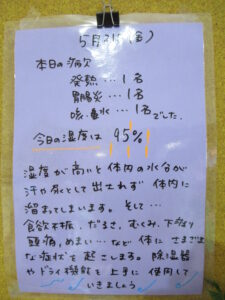 5月31日(金)
本日の病欠
発熱…1名
胃腸炎…1名
咳・鼻水…1名でした。
今日の湿度は 95%
湿度が高いと体内の水分が
汗や尿として出されず体内に
溜まってしまいます。そして…
食欲不振、だるさ、むくみ、下痢
頭痛、めまい…など体にさまざま
な症状を起こします。除湿器
やドライ機能を上手に使用して
いきましょう